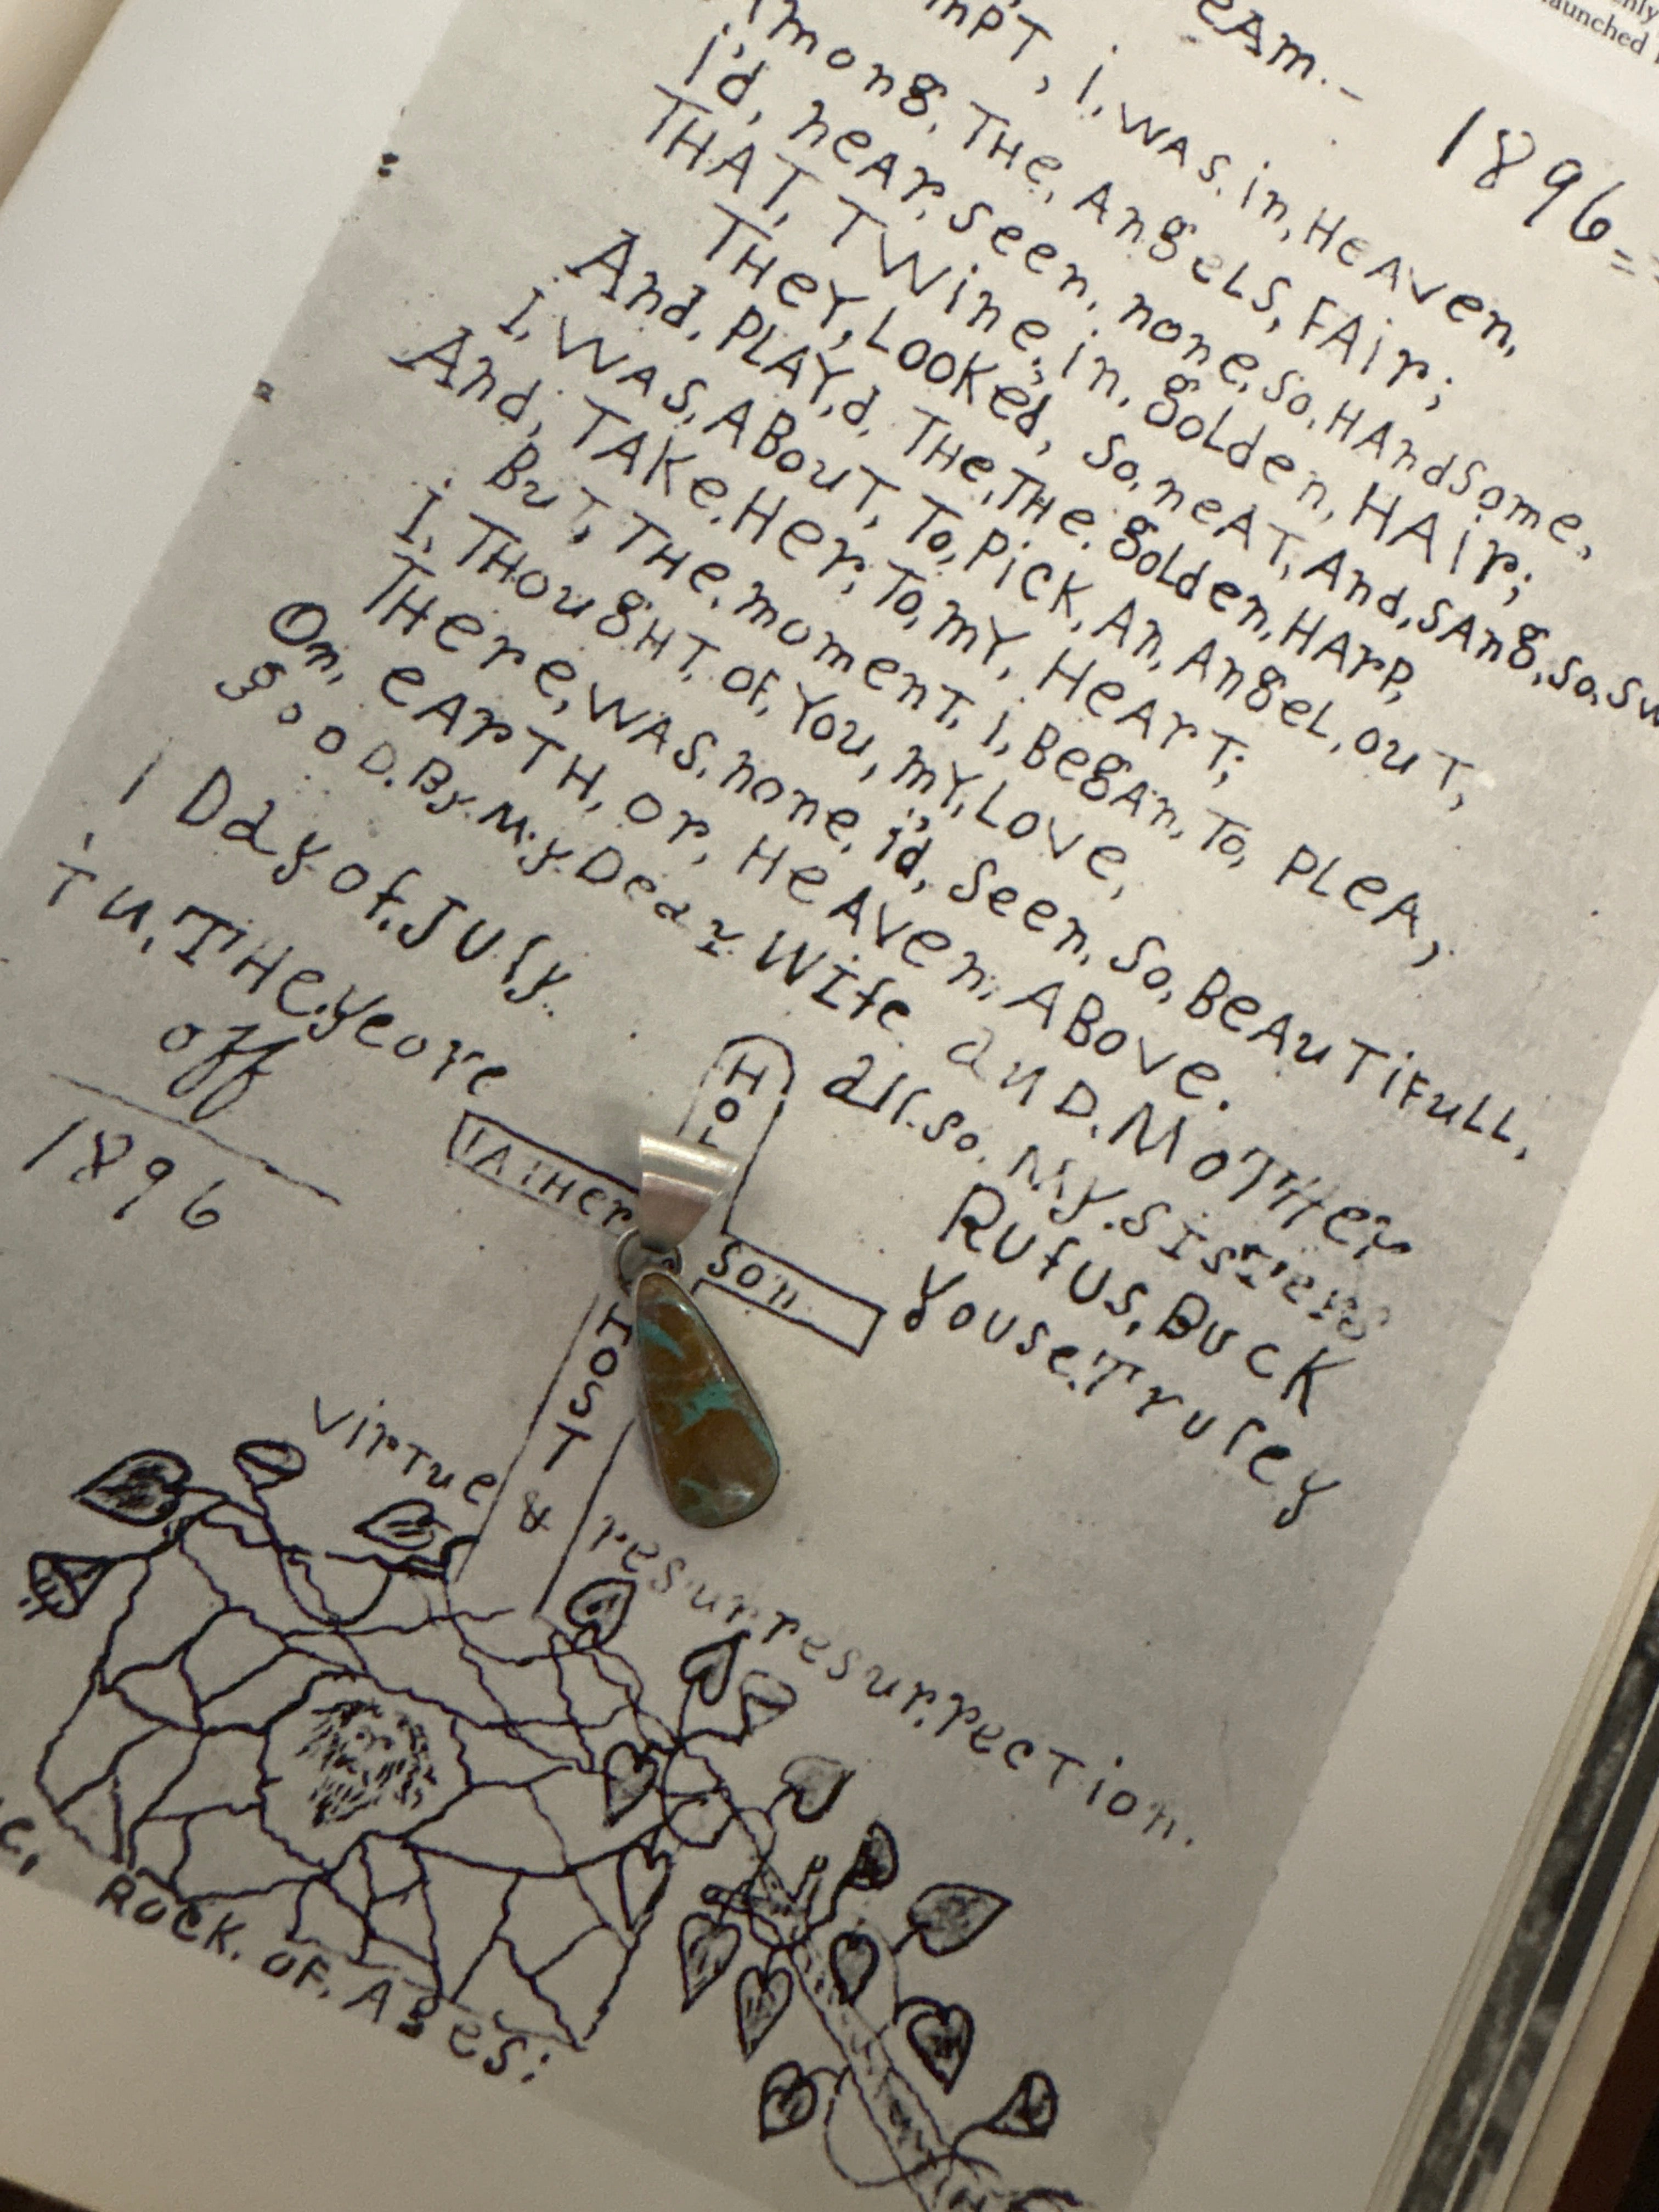 eAm.-
1896=
mPT, i, WAS. in, HeAven,
Among, THe, AngeLS, FAir;
i'd, neAr, seen, none, so, HAndSome,
THAT, TWine, in, golden, HAir;
THeY, LOOKed, so, neAT, And, SAng, so,
And, PLAY,d, THe, THe, golden, HArP,
I, WAS, ABouT, To, PiCK, An, AngeL, ouT,
And, TAKe, Her, To, mY, HeArT;
BuT, THe, momenT, i, BegAn, To, PLeA,
I, THougHT, oF, You, mY, Love,
THere, WAS, none, i'd, Seen, So, BeAuTiFuLL,
On, eArTH, or, HeAven, ABove.
gooD. By. My. Dear. Wife anD. MoTHer
all. so. My. SisTers
1 Day of. July
Tu. THe. yeore
off
1896
RUfUS, BuCK
youse. Truley
HOL
FATHer
Son.
HOST
&
virTue
resurresurrecTion.
RoCK. oF. Ages:
enly
launched